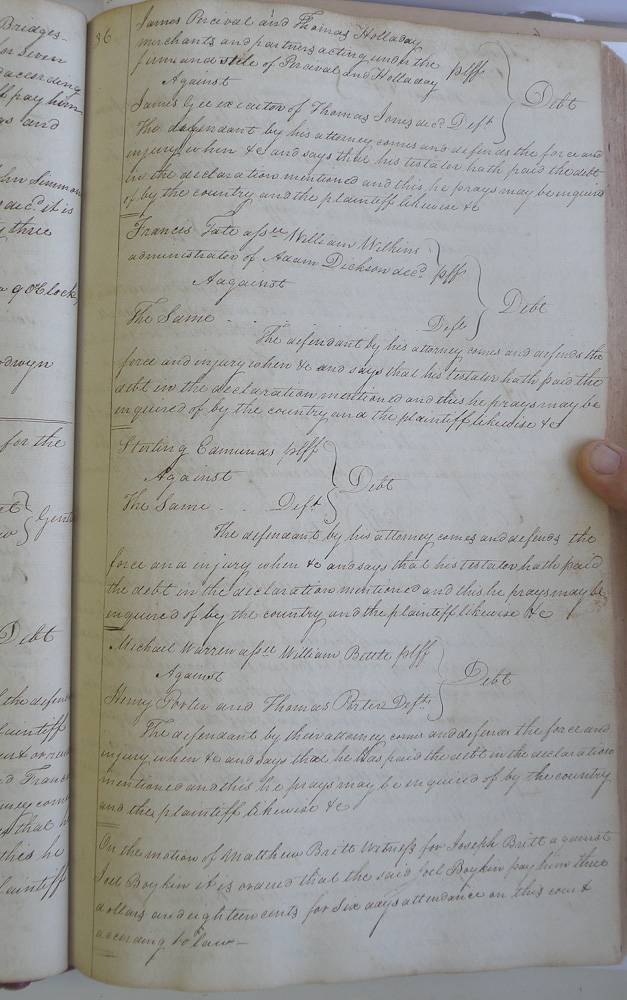 Bridges-
or seven
according
ll pay him
gs and
hn Simmons
decd it is
y three
9 oClock,
odwyn
for the
Gentn
Debt
the defend
laintiff
Franc
rney come
ys that h
this he
laintiff
36
James Percival and Thomas Holladay
merchants and partners acting under the
firm and stile of Percival and Holladay plff
Against
Debt
James Gee executor of Thomas Jones decd Deft
The defendant by his attorney comes and defends the force and
injury when &c and says that his testator hath paid the debt
in the declaration mentioned and this he prays may be inquired
of by the country and the plaintiff likewise &c
Frances Tate assee William Wilkins
administrator of Adam Dickson decd plff
Aagainst
Debt
The Same - - - Deft
The defendant by his attorney comes and defends the
force and injury when &c and says that his testator hath paid the
debt in the declaration mentioned and this he prays may be
inquired of by the country and the plaintiff likewise &c
Sterling Edmunds plff
Against
Debt
The Same - - Deft
The defendant by his attorney comes and defends the
force and injury when &c and says that his testator hath paid
the debt in the declaration mentioned and this he prays may be
inquired of by the country and the plaintiff likewise &c
Michael Warren assee William Battle plff
Against
Debt
Henry Porter and Thomas Porter Defts
The defendant by their attorney come and defends the force and
injury when &c and says that he has paid the debt in the declaration
mentioned and this he prays may be inquired of by the country
and the plaintiff likewise &c
On the motion of Matthew Britt Witness for Joseph Britt against
Joel Boykin it is ordered that the said Joel Boykin pay him three
dollars and eighteen cents for Six days attendance on this court
according to law-